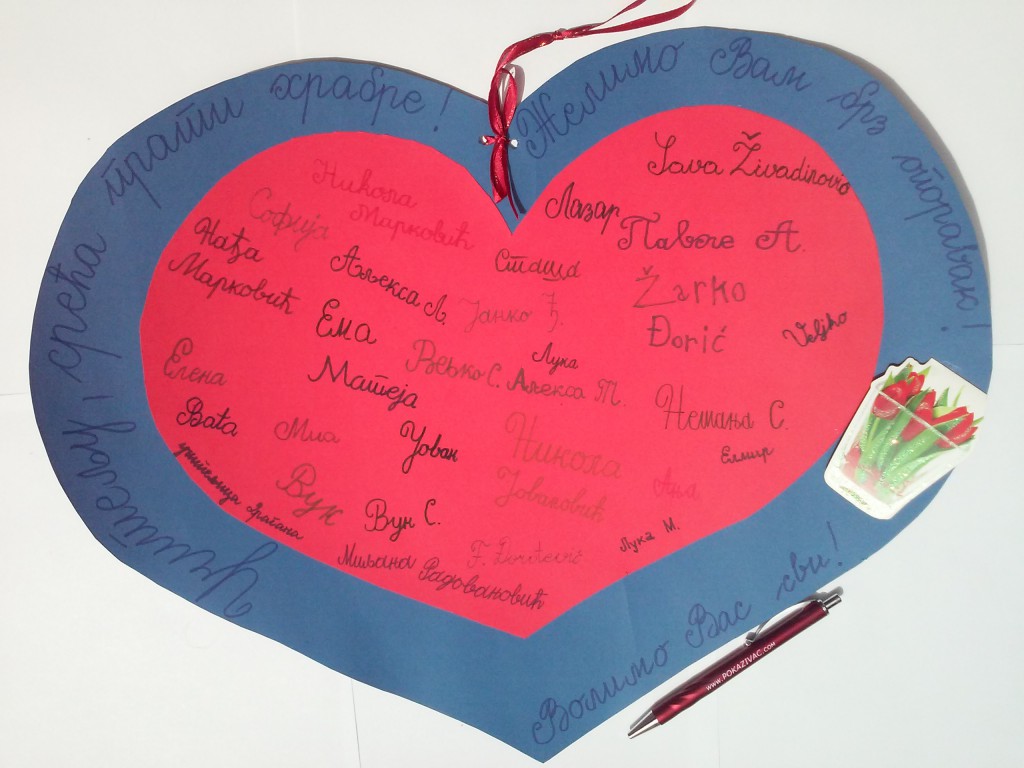 Учитељу, срећа прати храбре!
Желимо Вам брз опоравак!
Волимо Вас сви!
Sava Živadinović
Никола
Марковић
Лазар
Павле А.
Софија
Нађа
Марковић
Аљекса Л.
Сташа
Žarko
Đorić
Јанко Ђ.
Veljko
Ема
Лука
Вељко С.
Алекса М.
Елена
Матеја
Немања С.
Вата
Миа
Јован
Никола
Јовановић
Елмир
Ана
учитељица Драгана
Вук
Вук С.
Лука М.
F. Đorđević
Миљана Радовановић
www.POKAZIVAC.COM